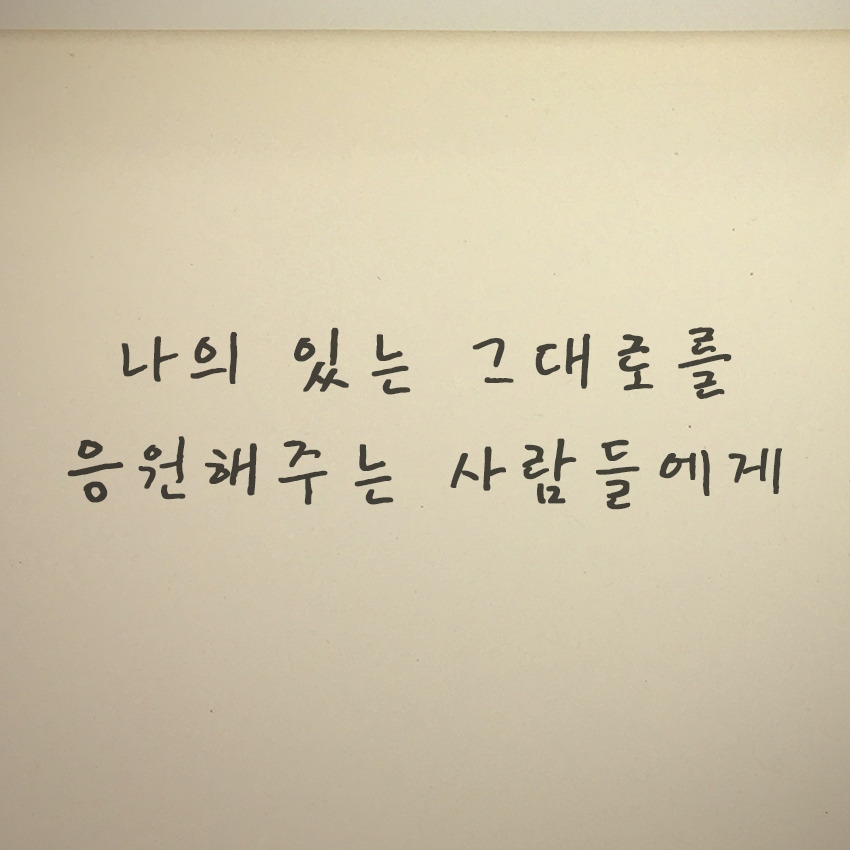 나의 있는 그대로를
응원해주는 사람들에게